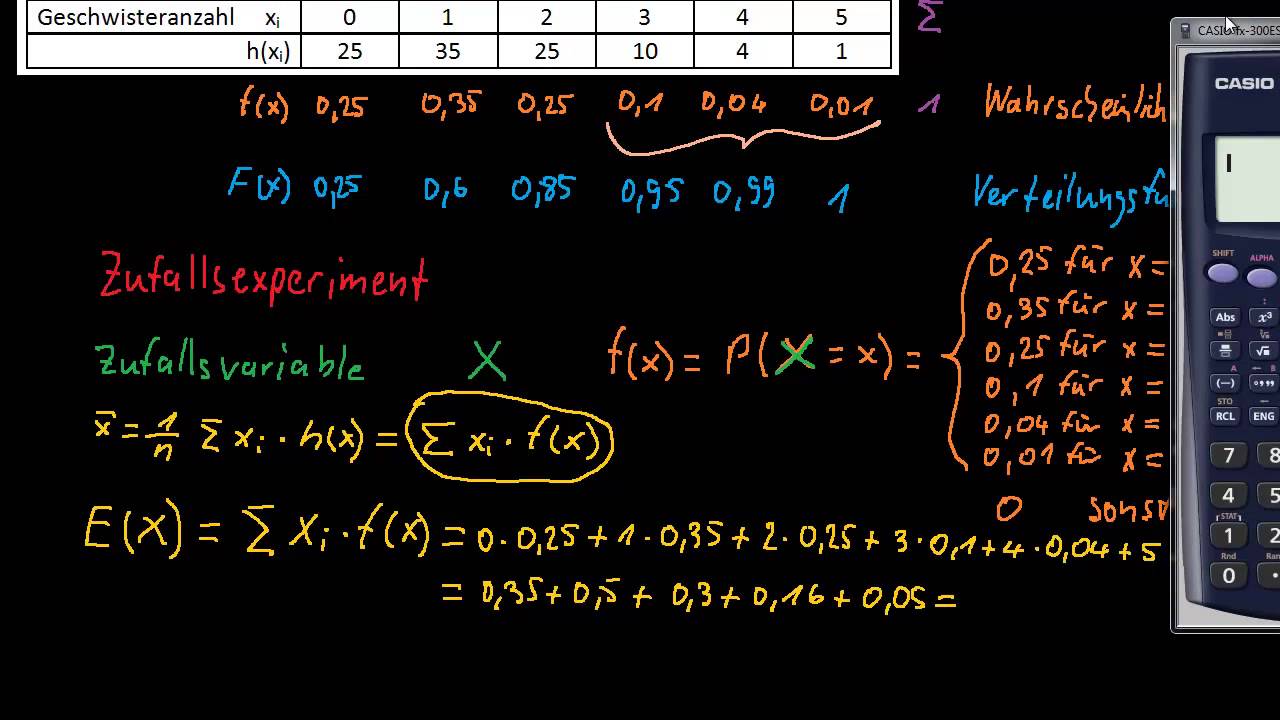 Geschwisteranzahl xᵢ 0 1 2 3 4 5 Σ
h(xᵢ) 25 35 25 10 4 1
CASIO fx-300ES
f(x) 0,25 0,35 0,25 0,1 0,04 0,01 1 Wahrscheinlich
CASIO
F(x) 0,25 0,6 0,85 0,95 0,99 1 Verteilungsfu
Zufallsexperiment
0,25 für x=
0,35 für x=
Zufallsvariable X f(x) = P(X = x) =
0,25 für x=
0,1 für x=
0,04 für x=
0,01 für x=
x̄ = 1/n Σ xᵢ · h(x) = Σ xᵢ · f(x)
0 sons
E(X) = Σ xᵢ · f(x) = 0 · 0,25 + 1 · 0,35 + 2 · 0,25 + 3 · 0,1 + 4 · 0,04 + 5
= 0,35 + 0,5 + 0,3 + 0,16 + 0,05 =
SHIFT ALPHA
Abs x³
√
A B
(—) °,,,
STO
RCL ENG
7 8
4 5
STAT
1 2
Rnd Ra
0 ·